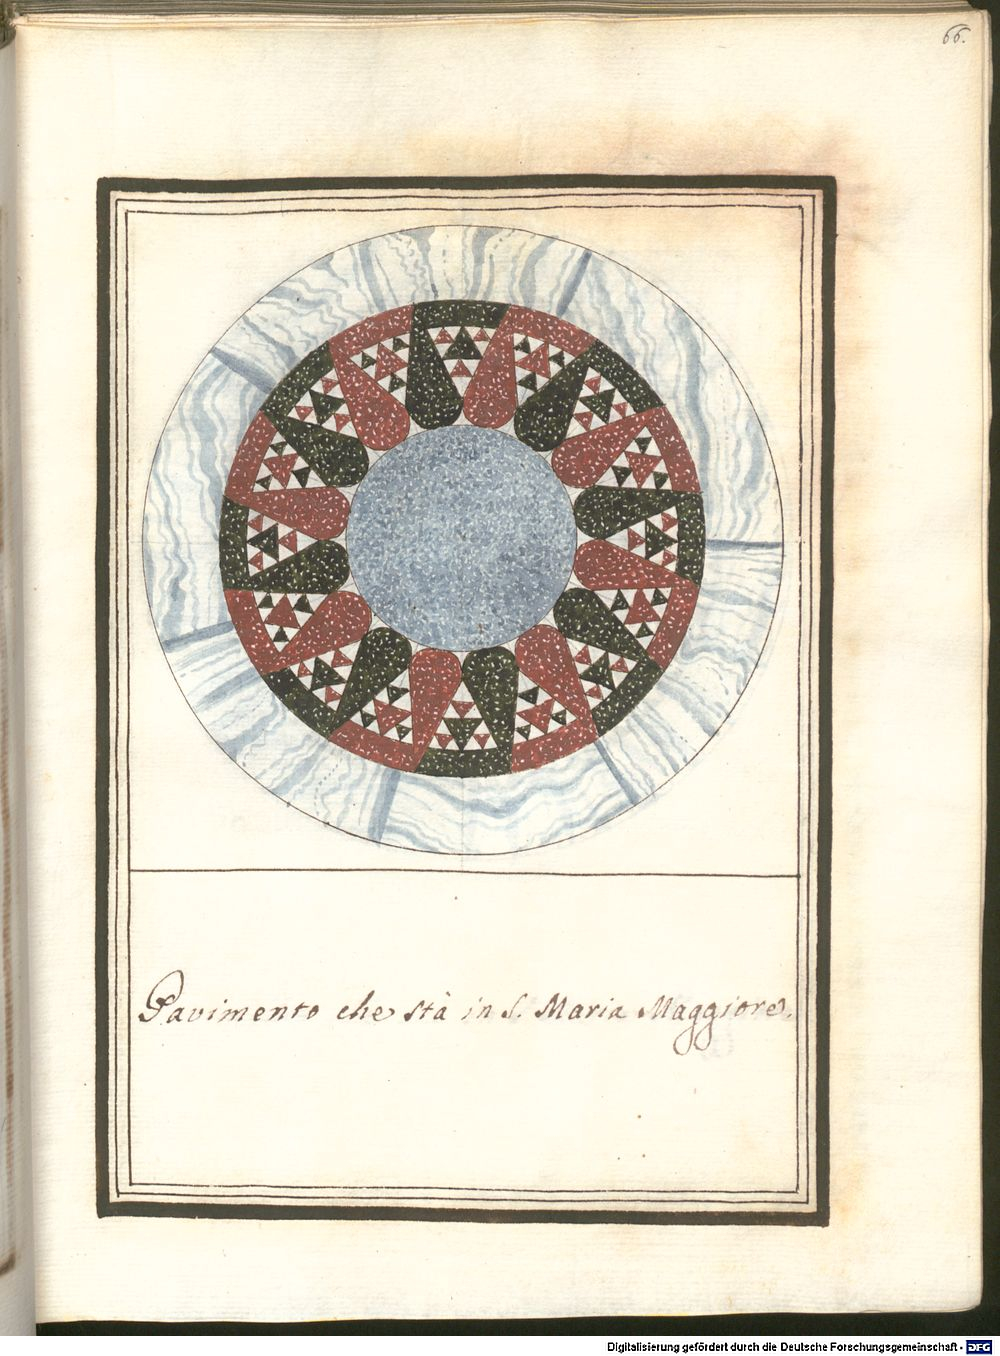 66.
Pavimento che stà in S. Maria Maggiore.
Digitalisierung gefördert durch die Deutsche Forschungsgemeinschaft - DFG